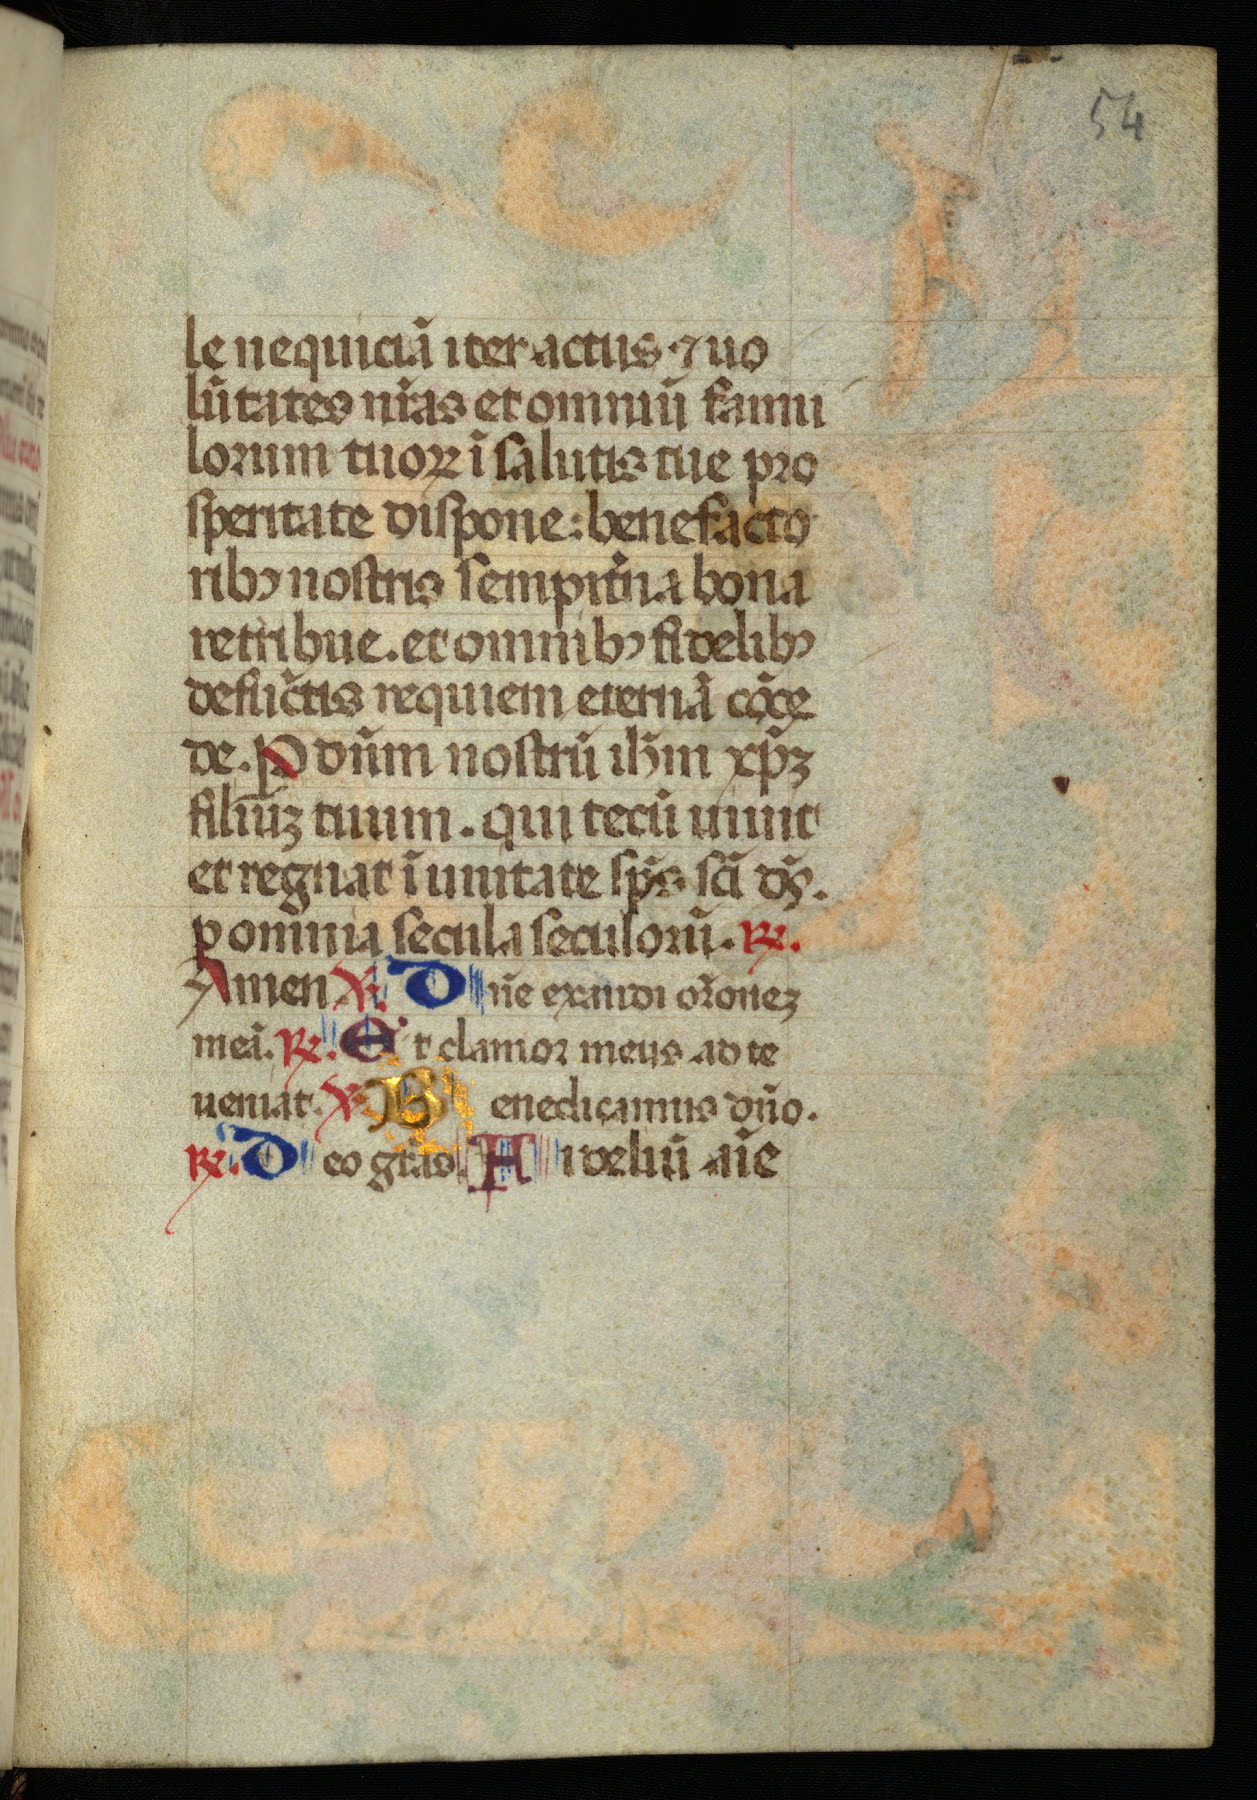 54
le nequiciā iter actus ⁊ uo
lūtates nr̄as et omniū famu
lorum tuoꝝ ī salutis tue pro
speritate dispone: benefacto
ribꝫ nostris sempit̄na bona
retribue. et omnibꝫ fidelibꝫ
defūctis requiem eternā cōce
de. P dūm nostrū ih̄m xp̄ꝫ
filiūꝫ tuum. qui tecū uiuit
et regnat ī unitate sp̄s sc̄i dꝰs.
ꝑ omnia secula seculorū. ℟.
Amen ℣. D n̄e exaudi or̄oneꝫ
meā. ℟. E t clamor meus ad te
ueniat. ℣. B enedicamus dn̄o.
℟. D eo gr̄as. F ideliū aīe